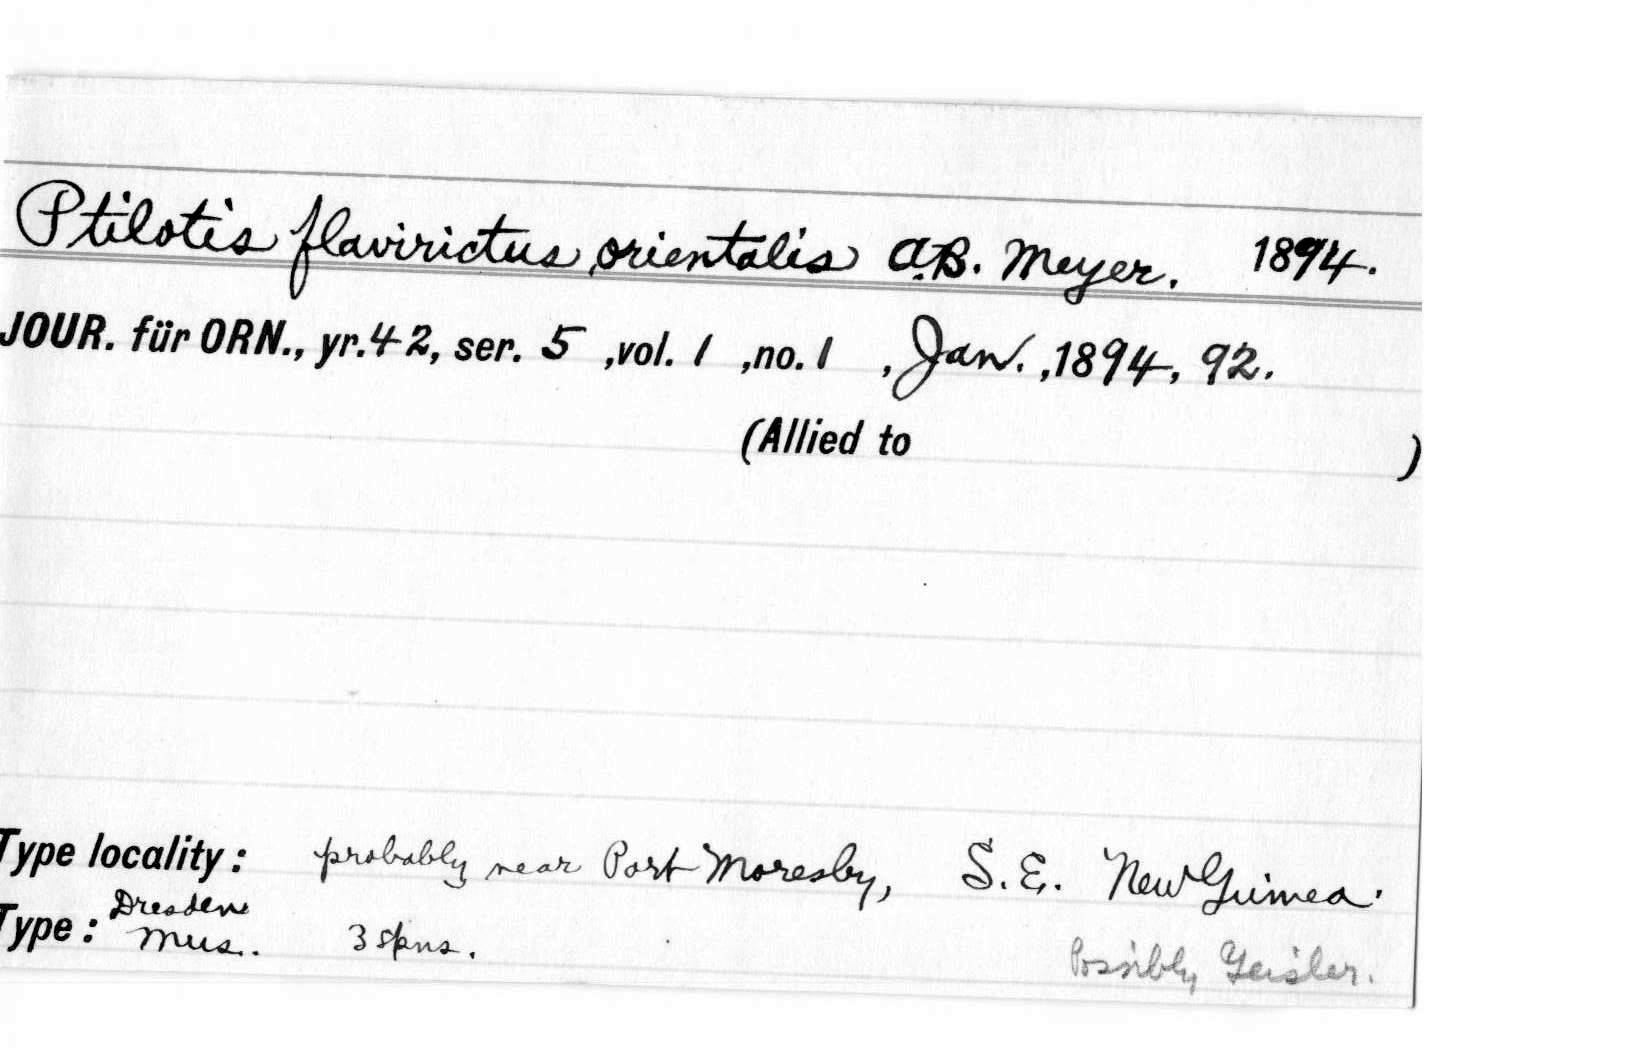 Ptilotis flavirictus orientalis A.B. Meyer. 1894.
JOUR. für ORN., yr. 42, ser. 5 ,vol. 1 ,no. 1 , Jan. ,1894, 92.
(Allied to )
Type locality: probably near Port Moresby, S.E. New Guinea.
Type: Dresden Mus. 3 spns.
Possibly Geisler.